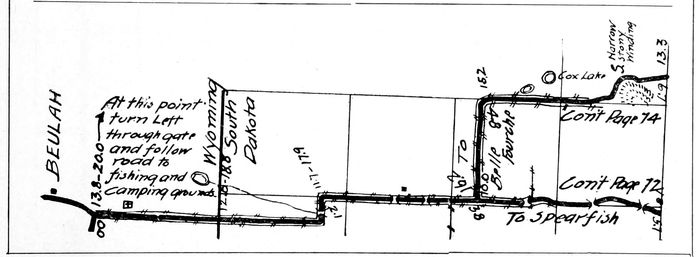 BEULAH
13.8-20.0
At this point
turn Left
through gate
and follow
road to
fishing and
camping grounds.
00
Wyoming
South
Dakota
11.7-17.9
1.2
15.2
TO
Belle
Fourche
4.8
10.0
3.8
Cox Lake
Narrow
Stony
Winding
13.3
1.9
Con't Page 74
Con't Page 72
To Spearfish
13.1